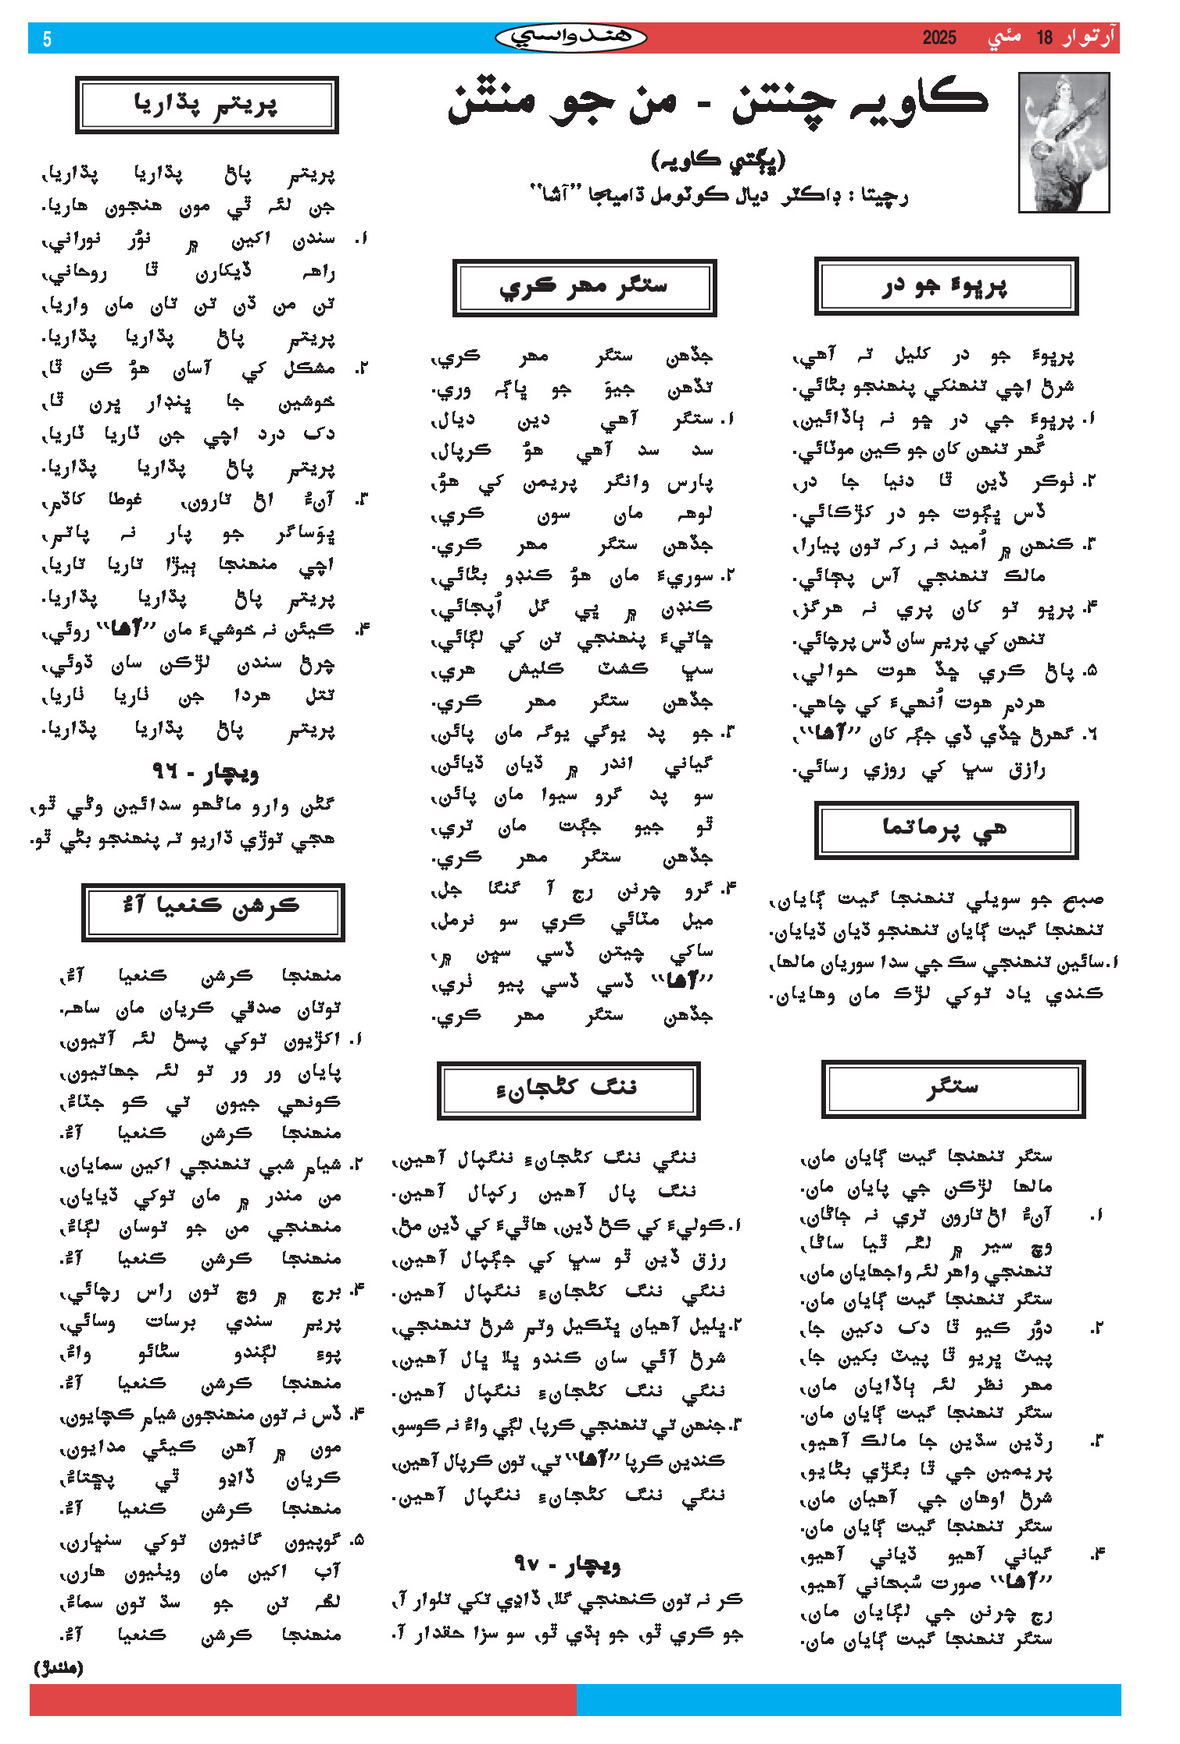 آرتوار 18 مئي 2025
هندواسي
5
ڪاويہ چنتن - من جو منٿن
(ڀڳتي ڪاويہ)
رچيتا : ڊاڪٽر ديال ڪوٽومل ڌاميڄا ”آشا“
پرڀوءَ جو در
پرڀوءَ جو در کليل تہ آهي،
شرڻ اچي تنهنکي پنهنجو بڻائي.
١. پرڀوءَ جي در ڇو نہ ٻاڏائين،
گُهر تنهن کان جو ڪين موٽائي.
٢. نوڪر ڏين ٿا دنيا جا در،
ڏس ڀڳوت جو در کڙڪائي.
٣. ڪنهن ۾ اُميد نہ رکہ تون پيارا،
مالڪ تنهنجي آس پڄائي.
۴. پرڀو تو کان پري نہ هرگز،
تنهن کي پريم سان ڏس پرچائي.
۵. پاڻ ڪري ڇڏ هوت حوالي،
هردم هوت اُنهيءَ کي چاهي.
٦. گهرڻ ڇڏي ڏي جڳہ کان ”آشا“،
رازق سڀ کي روزي رسائي.
هي پرماتما
صبح جو سويلي تنهنجا گيت ڳايان،
تنهنجا گيت ڳايان تنهنجو ڌيان ڌيايان.
١. سائين تنهنجي سڪ جي سدا سوريان مالها،
ڪندي ياد توکي لڙڪ مان وهايان.
ستگر
ستگر تنهنجا گيت ڳايان مان،
مالها لڙڪن جي پايان مان.
١. آنءُ اڻ تارون تري نہ ڄاڻان،
وچ سير ۾ لڱہ ٿيا ساڻا،
تنهنجي واهر لئہ واجهايان مان،
ستگر تنهنجا گيت ڳايان مان.
٢. دوُر ڪيو ٿا دک دکين جا،
پيٽ ڀريو ٿا پيٽ بکين جا،
مهر نظر لئہ ٻاڏايان مان،
ستگر تنهنجا گيت ڳايان مان.
٣. رڌين سڌين جا مالڪ آهيو،
پريمين جي ٿا بگڙي بڻايو،
شرڻ اوهان جي آهيان مان،
ستگر تنهنجا گيت ڳايان مان.
۴. گياني آهيو ڌياني آهيو،
”آشا“ صورت سُبحاني آهيو،
رج چرنن جي لڳايان مان،
ستگر تنهنجا گيت ڳايان مان.
ستگر مهر ڪري
جڏهن ستگر مهر ڪري،
تڏهن جيوَ جو ڀاڳہ وري.
١. ستگر آهي دين ديال،
سد سد آهي هوُ ڪرپال،
پارس وانگر پريمن کي هوُ،
لوهہ مان سون ڪري،
جڏهن ستگر مهر ڪري.
٢. سوريءَ مان هوُ ڪنڊو بڻائي،
ڪنڊن ۾ ڀي گل اُپڄائي،
ڇاتيءَ پنهنجي تن کي لڳائي،
سڀ ڪشٽ ڪليش هري،
جڏهن ستگر مهر ڪري.
٣. جو پد يوگي يوگہ مان پائن،
گياني اندر ۾ ڌيان ڌيائن،
سو پد گرو سيوا مان پائن،
ٿو جيو جڳت مان تري،
جڏهن ستگر مهر ڪري.
۴. گرو چرنن رج آ گنگا جل،
ميل مٽائي ڪري سو نرمل،
ساکي چيتن ڏسي سڀن ۾،
”آشا“ ڏسي ڏسي پيو ٺري،
جڏهن ستگر مهر ڪري.
ننگ کڻجانءِ
ننگي ننگ کڻجانءِ ننگپال آهين،
ننگ پال آهين رکپال آهين.
١. ڪوليءَ کي ڪڻ ڏين، هاٿيءَ کي ڏين مڻ،
رزق ڏين ٿو سڀ کي جڳپال آهين،
ننگي ننگ کڻجانءِ ننگپال آهين.
٢. ڀليل آهيان ڀٽڪيل وٺم شرڻ تنهنجي،
شرڻ آئي سان ڪندو ڀلا ڀال آهين،
ننگي ننگ کڻجانءِ ننگپال آهين.
٣. جنهن تي تنهنجي ڪرپا، لڳي واءُ نہ ڪوسو،
ڪندين ڪرپا ”آشا“ تي، تون ڪرپال آهين،
ننگي ننگ کڻجانءِ ننگپال آهين.
ويچار - ٩٧
ڪر نہ تون ڪنهنجي گلا، ڏاڍي تکي تلوار آ،
جو ڪري ٿو، جو ٻڌي ٿو، سو سزا حقدار آ.
پريتم پڌاريا
پريتم پاڻ پڌاريا پڌاريا،
جن لئہ ٿي مون هنجون هاريا.
١. سندن اکين ۾ نوُر نوراني،
راهہ ڏيکارن ٿا روحاني،
تن من ڌن تن تان مان واريا،
پريتم پاڻ پڌاريا پڌاريا.
٢. مشڪل کي آسان هوُ ڪن ٿا،
خوشين جا ڀنڊار ڀرن ٿا،
دک درد اچي جن ٽاريا ٽاريا،
پريتم پاڻ پڌاريا پڌاريا.
٣. آنءُ اڻ تارون، غوطا کاڌم،
ڀوَساگر جو پار نہ پاتم،
اچي منهنجا ٻيڙا تاريا تاريا،
پريتم پاڻ پڌاريا پڌاريا.
۴. ڪيئن نہ خوشيءَ مان ”آشا“ روئي،
چرڻ سندن لڙڪن سان ڌوئي،
تتل هردا جن ٺاريا ٺاريا،
پريتم پاڻ پڌاريا پڌاريا.
ويچار - ٩٦
گڻن وارو ماڻهو سدائين وڻي ٿو،
هجي توڙي ڌاريو تہ پنهنجو بڻي ٿو.
ڪرشن ڪنعيا آءُ
منهنجا ڪرشن ڪنعيا آءُ،
توتان صدقي ڪريان مان ساهہ.
١. اکڙيون توکي پسڻ لئہ آتيون،
پايان ور ور تو لئہ جهاتيون،
ڪونهي جيون تي ڪو جٽاءُ،
منهنجا ڪرشن ڪنعيا آءُ.
٢. شيام شبي تنهنجي اکين سمايان،
من مندر ۾ مان توکي ڌيايان،
منهنجي من جو توسان لڳاءُ،
منهنجا ڪرشن ڪنعيا آءُ.
۴. برج ۾ وڃ تون راس رچائي،
پريم سندي برسات وسائي،
پوءِ لڳندو سڻائو واءُ،
منهنجا ڪرشن ڪنعيا آءُ.
۴. ڏس نہ تون منهنجون شيام ڪچايون،
مون ۾ آهن ڪيئي مدايون،
ڪريان ڏاڍو ٿي پڇتاءُ،
منهنجا ڪرشن ڪنعيا آءُ.
۵. گوپيون گانيون توکي سنڀارن،
آب اکين مان ويٺيون هارن،
لڱہ تن جو سڏ تون سماءُ،
منهنجا ڪرشن ڪنعيا آءُ.
(هلندڙ)